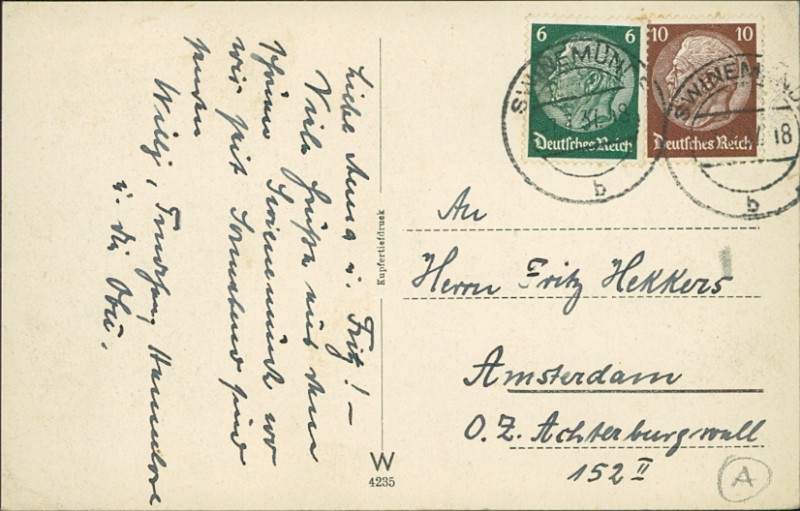 Liebe Anna u. Fritz! –
Viele Grüße aus dem
schönen Swinemünde wo
wir seit Sonnabend sind
senden
Willy, Hannelore
u. die Oma.
Kupfertiefdruck
W
4235
6 6
Deutsches Reich
10 10
Deutsches Reich
SWINEMÜN
37 18
b
SWINEMÜND
18
b
An
Herrn Fritz Hekkers
Amsterdam
O. Z. Achterburgwall
152 II
A